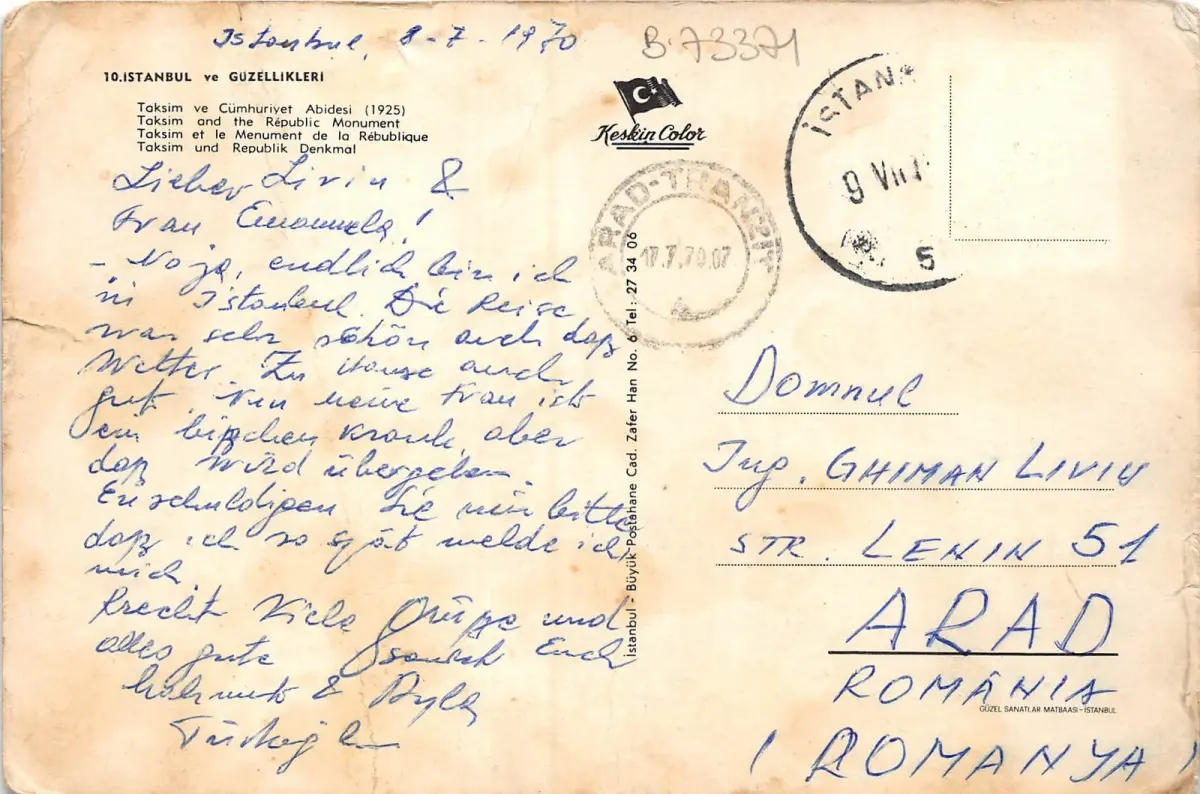 Istanbul, 8-7-1970
B.73371
10.İSTANBUL ve GÜZELLİKLERİ
Taksim ve Cümhuriyet Abidesi (1925)
Taksim and the République Monument
Taksim et le Menument de la Rébublique
Taksim und Republik Denkmal
Keskin Color
İSTAN
9 VII
5
ARAD-TRANZIT
17.7.70.07
Lieber Livin &
Frau Emanuela!
- Na ja, endlich bin ich
in Istanbul. Die Reise
war sehr schön auch daß
Wetter. Zu Hause auch
gut. Nun meine Frau ist
ein bißchen krank, aber
daß wird übergehen.
Enschuldigen Sie mir bitte
daß ich so spät melde ich
mich.
Recht Viele Grüße und
alles gute Euch
& Ayla
İstanbul - Büyük Postahane Cad. Zafer Han No. 6 Tel: 27 34 06
Domnul
Ing. GHIMAN LIVIU
STR. LENIN 51
ARAD
ROMÂNIA
GÜZEL SANATLAR MATBAASI-İSTANBUL
(ROMANYA)